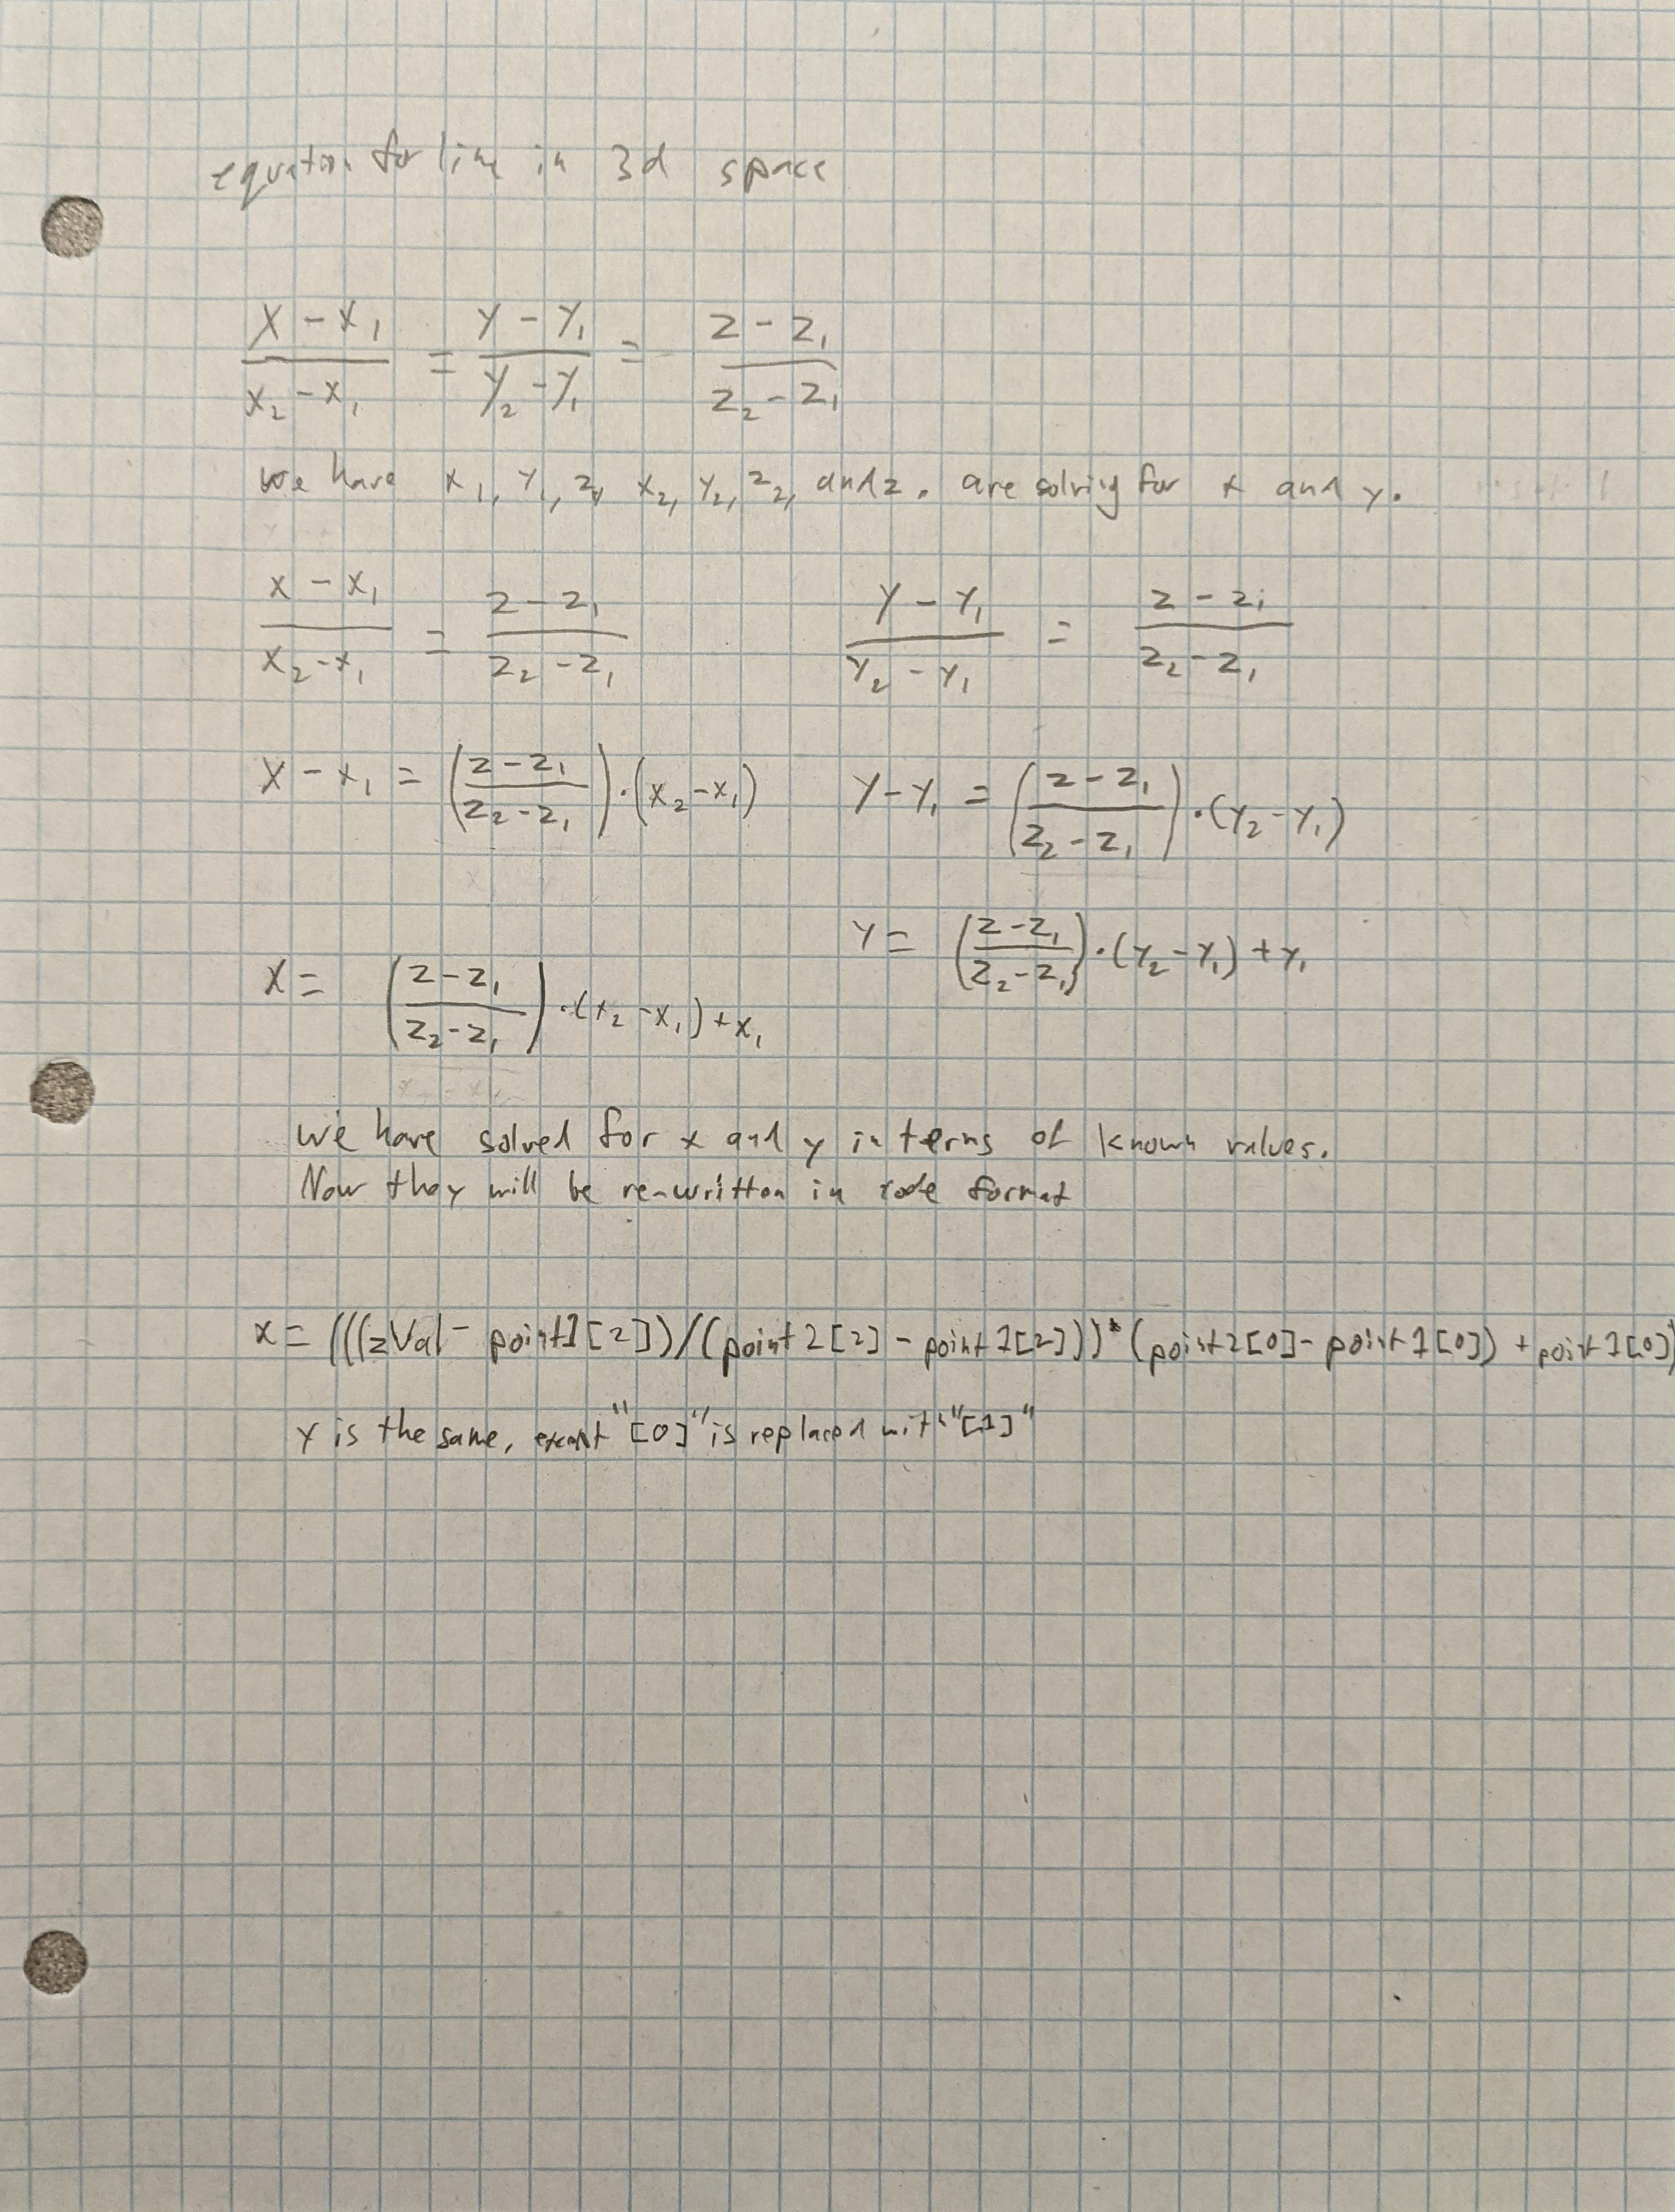 equation for line in 3d space
x - x₁ / x₂ - x₁ = y - y₁ / y₂ - y₁ = z - z₁ / z₂ - z₁
we have x₁, y₁, z₁, x₂, y₂, z₂, and z. are solving for x and y.
x - x₁ / x₂ - x₁ = z - z₁ / z₂ - z₁
y - y₁ / y₂ - y₁ = z - z₁ / z₂ - z₁
x - x₁ = (z - z₁ / z₂ - z₁) · (x₂ - x₁)
y - y₁ = (z - z₁ / z₂ - z₁) · (y₂ - y₁)
y = (z - z₁ / z₂ - z₁) · (y₂ - y₁) + y₁
x = (z - z₁ / z₂ - z₁) · (x₂ - x₁) + x₁
we have solved for x and y in terms of known values.
Now they will be re-written in code format
x = (((zVal - point1[2])/(point2[2] - point1[2]))*(point2[0] - point1[0]) + point1[0])
y is the same, except "[0]" is replaced with "[1]"